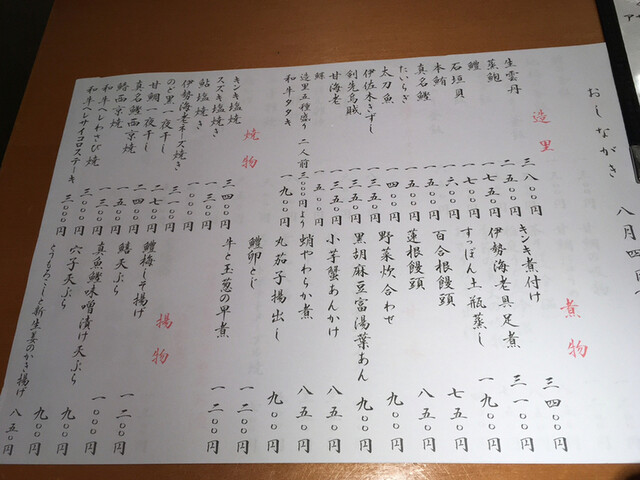 おしながき 八月四
造里
生雲丹 三八〇〇円
蒸鮑 二五〇〇円
鱧 一七五〇円
石垣貝 一七〇〇円
本鮪 一六〇〇円
真名鰹 一五〇〇円
たいらぎ 一五〇〇円
太刀魚 一四〇〇円
伊佐木きずし 一三五〇円
剣先烏賊 一三五〇円
甘海老 一二〇〇円
鮃 一五〇〇円
造里五種盛り 二人前 三〇〇〇円より
和牛タタキ 一九〇〇円
焼物
キンキ塩焼 三四〇〇円
スズキ塩焼き 一三〇〇円
鮎塩焼き 一〇〇〇円
伊勢海老チーズ焼き 三一〇〇円
のど黒一夜干し 二七〇〇円
甘鯛一夜干し 二四〇〇円
真名鰹西京焼 一五〇〇円
鰆西京焼 一三〇〇円
和牛ヘレわさび焼 三〇〇〇円
和牛ヘレサイコロステーキ 三〇〇〇円
煮物
キンキ煮付け 三四〇〇円
伊勢海老具足煮 三一〇〇円
すっぽん土瓶蒸し 一九〇〇円
百合根饅頭 七五〇円
蓮根饅頭 八五〇円
野菜炊合わせ 九〇〇円
黒胡麻豆富湯葉あん 九〇〇円
小芋蟹あんかけ 八五〇円
蛸やわらか煮 八五〇円
丸茄子揚出し 九〇〇円
鱧卵とじ 一二〇〇円
牛と玉葱の早煮 一二〇〇円
揚物
鱧梅しそ揚げ 一二〇〇円
鱚天ぷら 一〇〇〇円
真魚鰹味噌漬け天ぷら 九〇〇円
穴子天ぷら 九〇〇円
とうもろこしと新生姜のかき揚げ 八五〇円